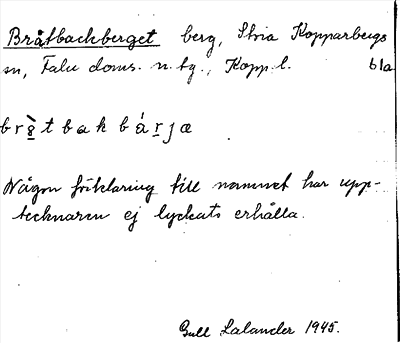 Bråtbackberget berg, Stora Kopparbergs
sn, Falu doms. n. tg., Kopp. l. 61a
br t bak bárjæ
Någon förklaring till namnet har upp-
tecknaren ej lyckats erhålla.
Gull Lalander 1945.